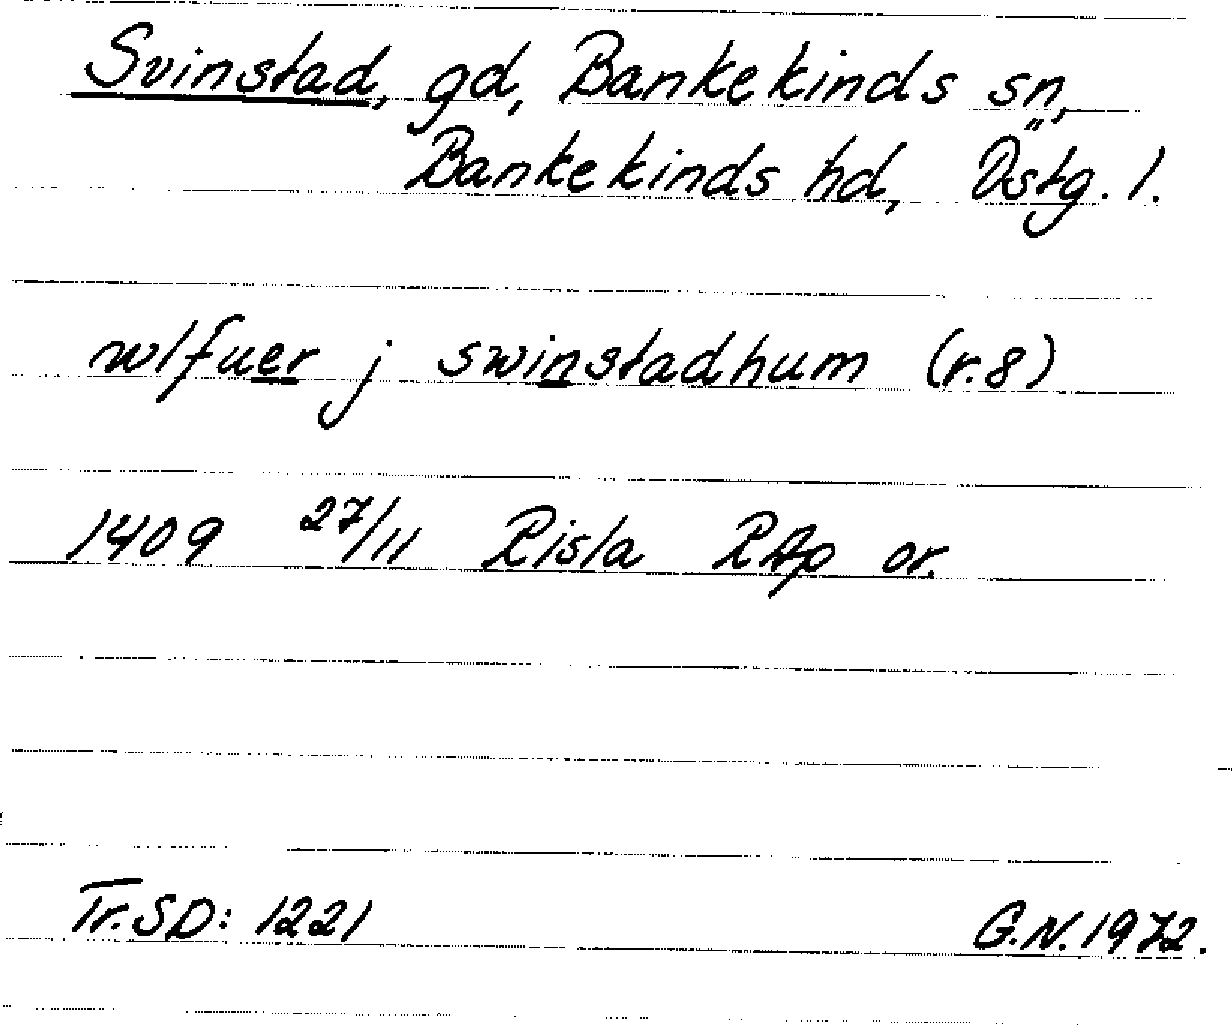 Svinstad, gd, Bankekinds sn,
Bankekinds hd, Östg. l.
wlfuer j swinstadhum (r. 8)
1409 27/11 Risla RAp or.
Tr. SD: 1221
G.N. 1972.